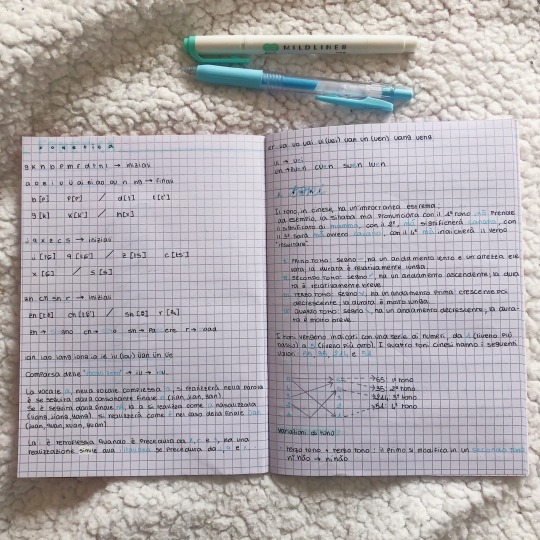 MILDLINER
Fonetica
g k h b p m f d t n l → iniziali
a o e i u ü ai ei ao ou n ng → finali
b [p] p [p'] / d [t] t [t']
g [k] k [k'] / h [x]
j q x z c s → iniziali
j [tɕ] q [tɕ'] / z [ts] c [ts']
x [ɕ] / s [s]
zh ch sh r → iniziali
zh [tʂ] ch [tʂ'] / sh [ʂ] r [ʐ]
ian iao iang iong ia ie iu (iou) üan ün üe
Comparsa delle
La vocale a, nella vocale complessa, si realizzerà nella parola
è se seguita dalla consonante finale n (lian, xian, yan).
Se è seguita dalla finale ng, la a si realizza come nasalizzata
(liang, jiang, yang). si realizzerà come nel caso della finale üan
(juan, quan, xuan, yuan)
La i è retroflessa quando è preceduta da
realizzazione simile alla se preceduta da
er ua uo uai ui (uei) uan un (uen) uang ueng
ui → uei
un → uen
I toni
Il tono, in cinese, ha un'importanza estrema:
ad esempio, la sillaba ma pronunciata con il 1° tono mā prende
il significato di mamma, con il 2°, má significherà canapa, con
il 3° sarà mǎ ovvero cavallo, con il 4° mà indicherà il verbo
"insultare"
PRIMO TONO: segno -, ha un andamento lento e un'altezza ele
vata, la durata è relativamente lunga;
SECONDO TONO: segno ´, ha un andamento ascendente, la dura
ta è relativamente breve
TERZO TONO: segno ˇ, ha un andamento prima crescente poi
decrescente, la durata è molto lunga
QUARTO TONO: segno `, ha un andamento decrescente, la dura
ta è molto breve
I toni vengono marcati con una serie di numeri, da 1 (livello più
basso) a 5 (livello più alto). I quattro toni cinesi hanno i seguenti
valori: 55, 35, 214 e 51
55: 1° tono
35: 2° tono
214: 3° tono
51: 4° tono
Variazioni di tono
terzo tono + terzo tono: il primo si modifica in un secondo tono
nǐ hǎo → ní hǎo